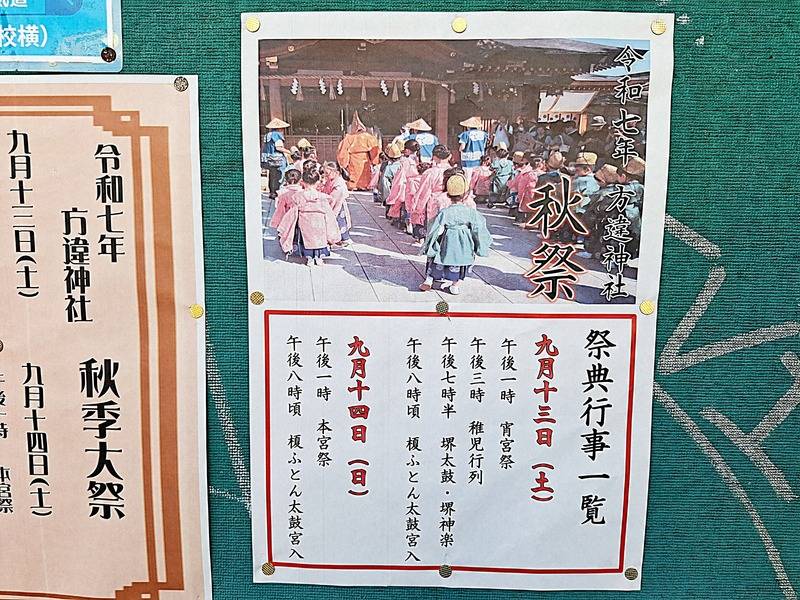 校横）
令和七年
方違神社
秋季大祭
九月十三日（土）
九月十四日（土）
本宮祭
令和七年 方違神社
秋祭
祭典行事一覧
九月十三日（土）
午後一時 宵宮祭
午後三時 稚児行列
午後七時半 堺太鼓・堺神楽
午後八時頃 榎ふとん太鼓宮入
九月十四日（日）
午後一時 本宮祭
午後八時頃 榎ふとん太鼓宮入